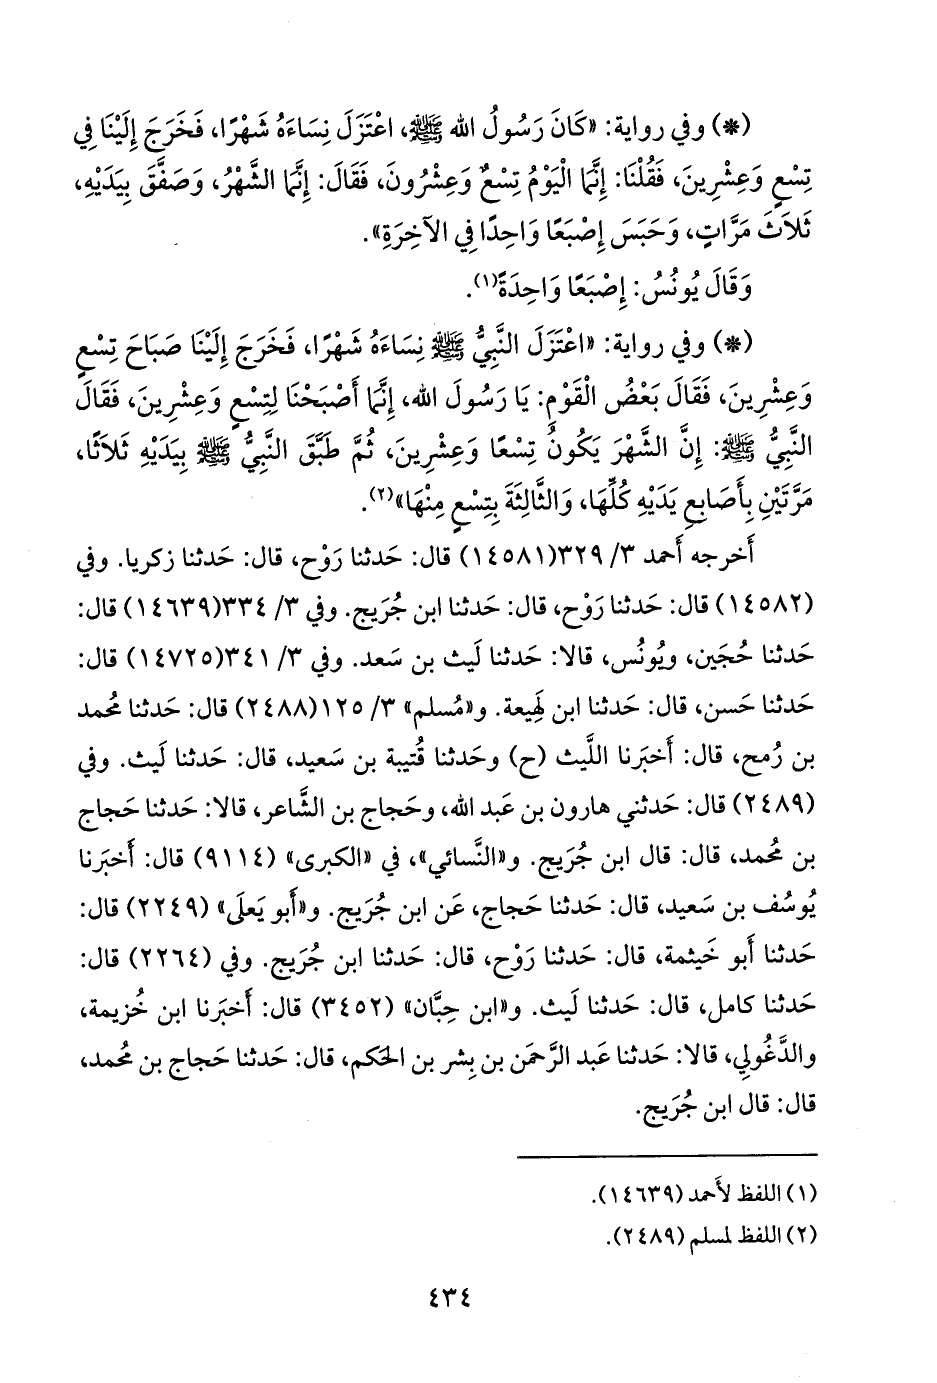 (*) وفي رواية: «كَانَ رَسُولُ الله ﷺ، اعْتَزَلَ نِسَاءَهُ شَهْرًا، فَخَرَجَ إِلَيْنَا فِي
تِسْعٍ وَعِشْرِينَ، فَقُلْنَا: إِنَّمَا الْيَوْمُ تِسْعٌ وَعِشْرُونَ، فَقَالَ: إِنَّمَا الشَّهْرُ، وَصَفَّقَ بِيَدَيْهِ،
ثَلاَثَ مَرَّاتٍ، وَحَبَسَ إِصْبَعًا وَاحِدًا فِي الآخِرَةِ».
وَقَالَ يُونُسُ: إِصْبَعًا وَاحِدَةً(١).
(*) وفي رواية: «اعْتَزَلَ النَّبِيُّ ﷺ نِسَاءَهُ شَهْرًا، فَخَرَجَ إِلَيْنَا صَبَاحَ تِسْعٍ
وَعِشْرِينَ، فَقَالَ بَعْضُ الْقَوْمِ: يَا رَسُولَ الله، إِنَّمَا أَصْبَحْنَا لِتِسْعٍ وَعِشْرِينَ، فَقَالَ
النَّبِيُّ ﷺ: إِنَّ الشَّهْرَ يَكُونُ تِسْعًا وَعِشْرِينَ، ثُمَّ طَبَّقَ النَّبِيُّ ﷺ بِيَدَيْهِ ثَلاَثًا،
مَرَّتَيْنِ بِأَصَابِعِ يَدَيْهِ كُلِّهَا، وَالثَّالِثَةَ بِتِسْعٍ مِنْهَا»(٢).
أَخرجه أَحمد ٣/ ٣٢٩(١٤٥٨١) قال: حَدثنا رَوْح، قال: حَدثنا زكريا. وفي
(١٤٥٨٢) قال: حَدثنا رَوْح، قال: حَدثنا ابن جُرَيج. وفي ٣/ ٣٣٤(١٤٦٣٩) قال:
حَدثنا حُجَين، ويُونُس، قالا: حَدثنا لَيث بن سَعد. وفي ٣/ ٣٤١(١٤٧٢٥) قال:
حَدثنا حَسن، قال: حَدثنا ابن لَهِيعة. و«مُسلم» ٣/ ١٢٥(٢٤٨٨) قال: حَدثنا مُحمد
بن رُمح، قال: أَخبَرنا اللَّيث (ح) وحَدثنا قُتيبة بن سَعيد، قال: حَدثنا لَيث. وفي
(٢٤٨٩) قال: حَدثني هارون بن عَبد الله، وحَجاج بن الشَّاعر، قالا: حَدثنا حَجاج
بن مُحمد، قال: قال ابن جُرَيج. و«النَّسائي»، في «الكبرى» (٩١١٤) قال: أَخبَرنا
يُوسُف بن سَعيد، قال: حَدثنا حَجاج، عَن ابن جُرَيج. و«أَبو يَعلَى» (٢٢٤٩) قال:
حَدثنا أَبو خَيثمة، قال: حَدثنا رَوْح، قال: حَدثنا ابن جُرَيج. وفي (٢٢٦٤) قال:
حَدثنا كامل، قال: حَدثنا لَيث. و«ابن حِبَّان» (٣٤٥٢) قال: أَخبَرنا ابن خُزيمة،
والدَّغُولي، قالا: حَدثنا عَبد الرَّحمَن بن بِشر بن الحَكم، قال: حَدثنا حَجاج بن مُحمد،
قال: قال ابن جُرَيج.
(١) اللفظ لأَحمد (١٤٦٣٩).
(٢) اللفظ لمسلم (٢٤٨٩).
٤٣٤